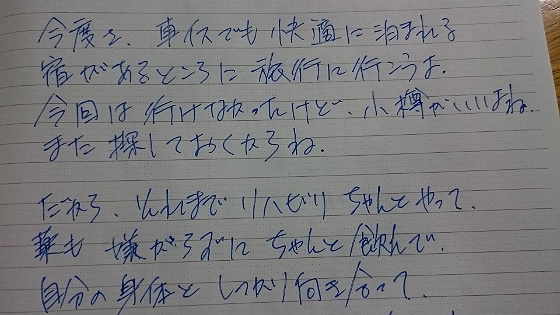 今度は、車イスでも快適に泊まれる
宿があるところに旅行に行こうよ。
今回は行けなかったけど、小樽がいいよね。
また探しておくからね。
だから、それまでリハビリちゃんとやって、
薬も嫌がらずにちゃんと飲んで、
自分の身体としっかり向き合って、